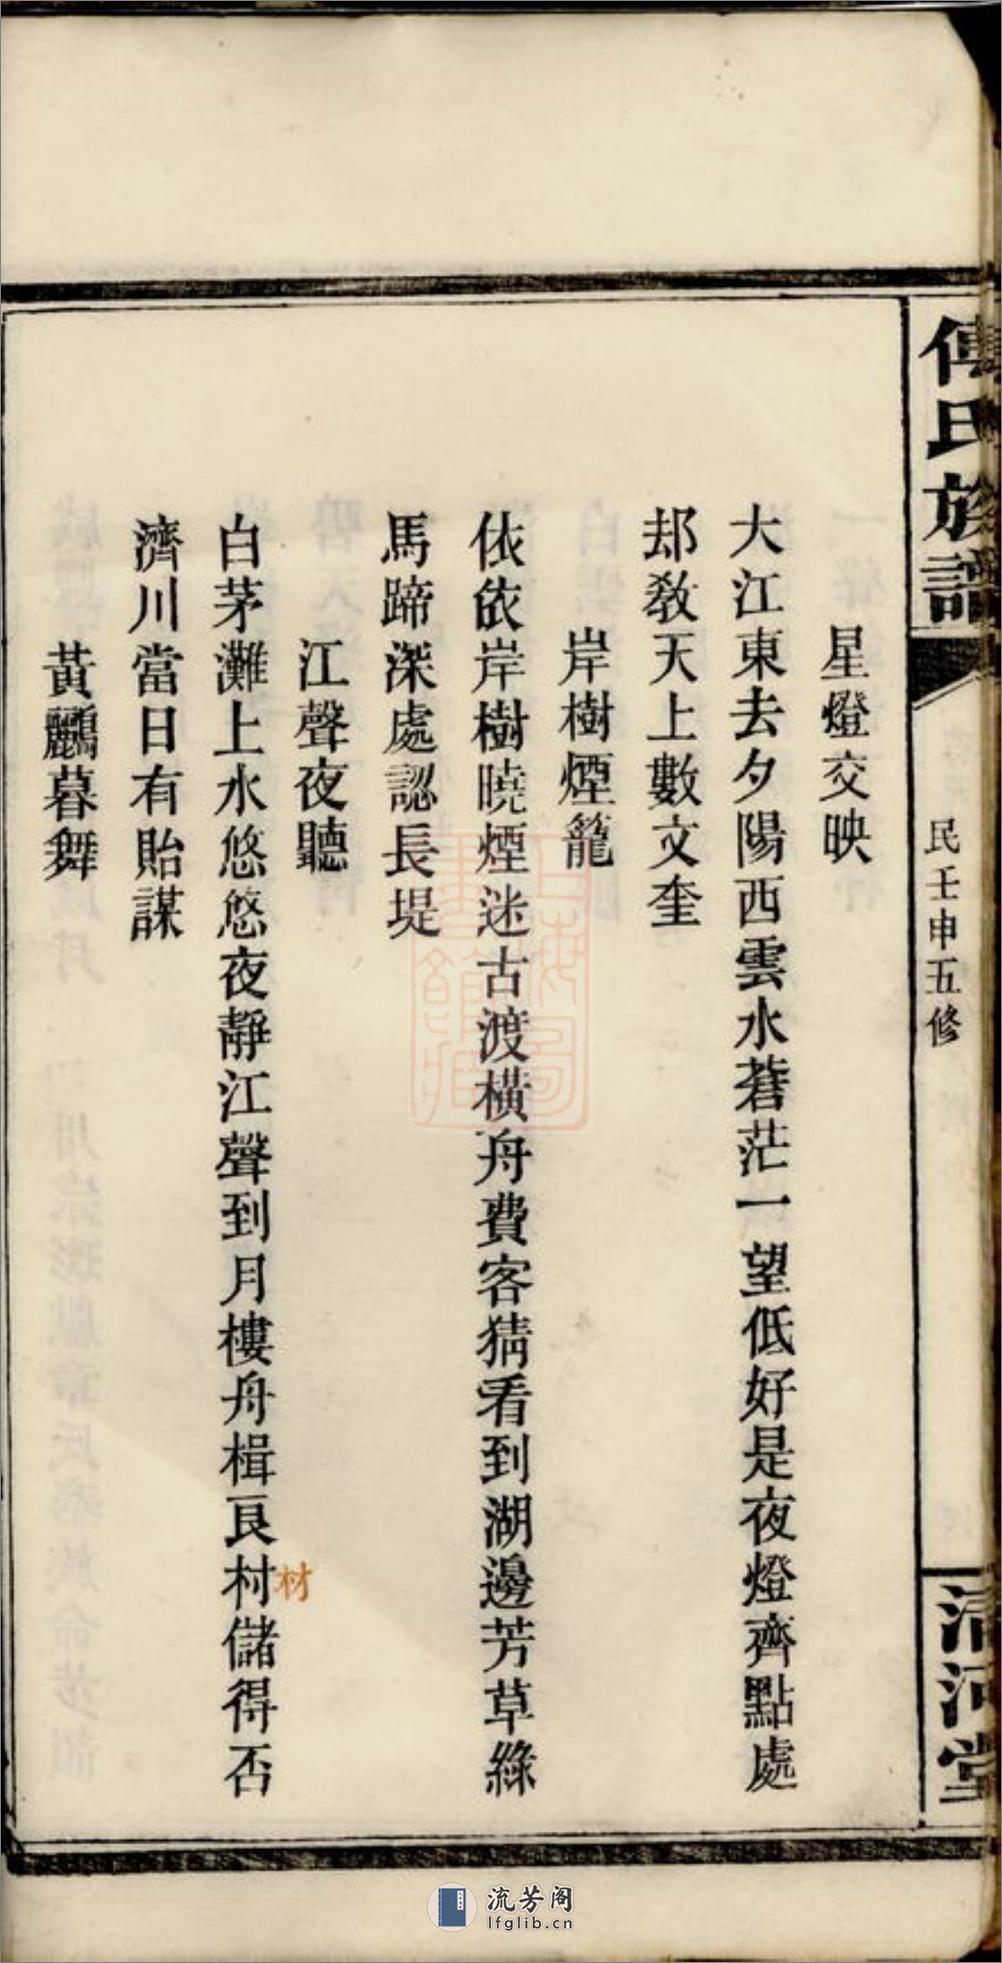 傅氏族譜
民壬申五修
清河堂
星燈交映
大江東去夕陽西雲水蒼茫一望低好是夜燈齊點處
却教天上數文奎
岸樹煙籠
依依岸樹曉煙迷古渡橫舟費客猜看到湖邊芳草綠
馬蹄深處認長堤
江聲夜聽
白茅灘上水悠悠夜靜江聲到月樓舟楫良村儲得否
材
濟川當日有貽謀
黃鸝暮舞
上海圖書館藏
流芳阁
lfglib.cn